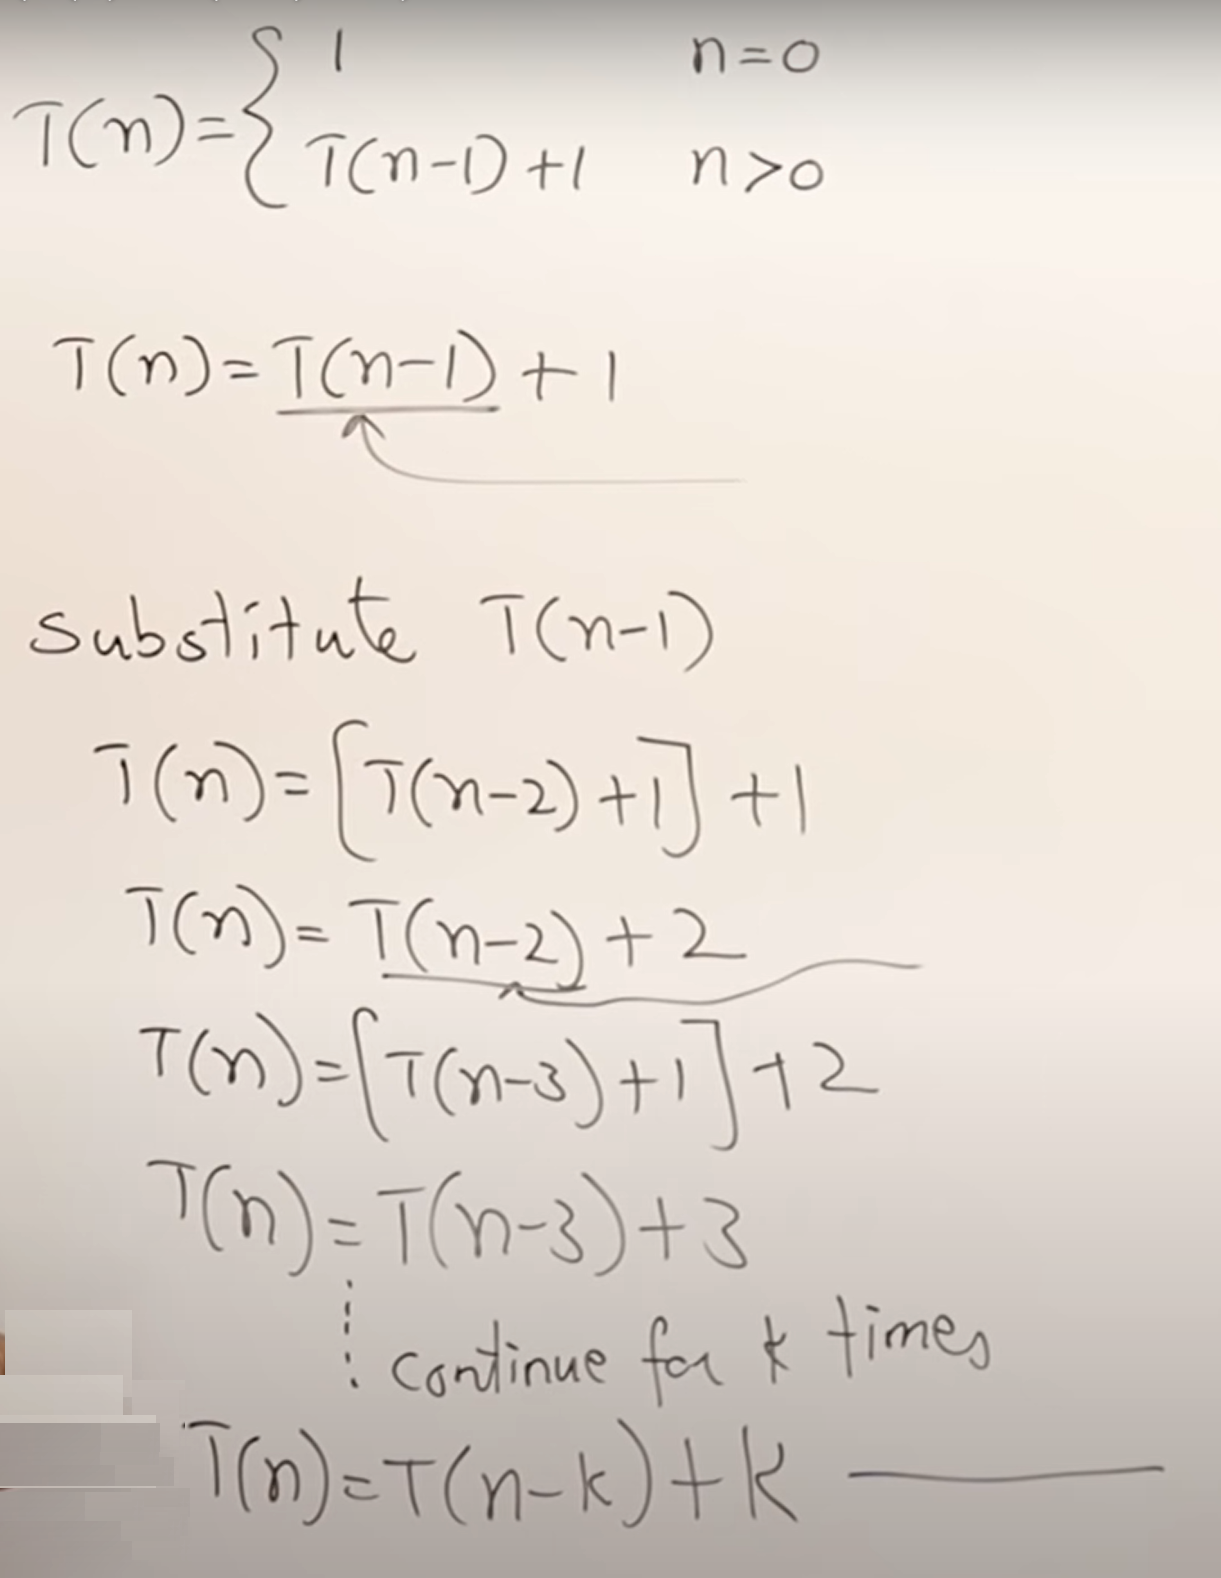 T(n) = { 1 n=0
T(n-1) +1 n>0
T(n) = T(n-1) + 1
substitute T(n-1)
T(n) = [T(n-2) +1] +1
T(n) = T(n-2) + 2
T(n) = [T(n-3) +1] +2
T(n) = T(n-3) +3
continue for k times
T(n) = T(n-k) + k